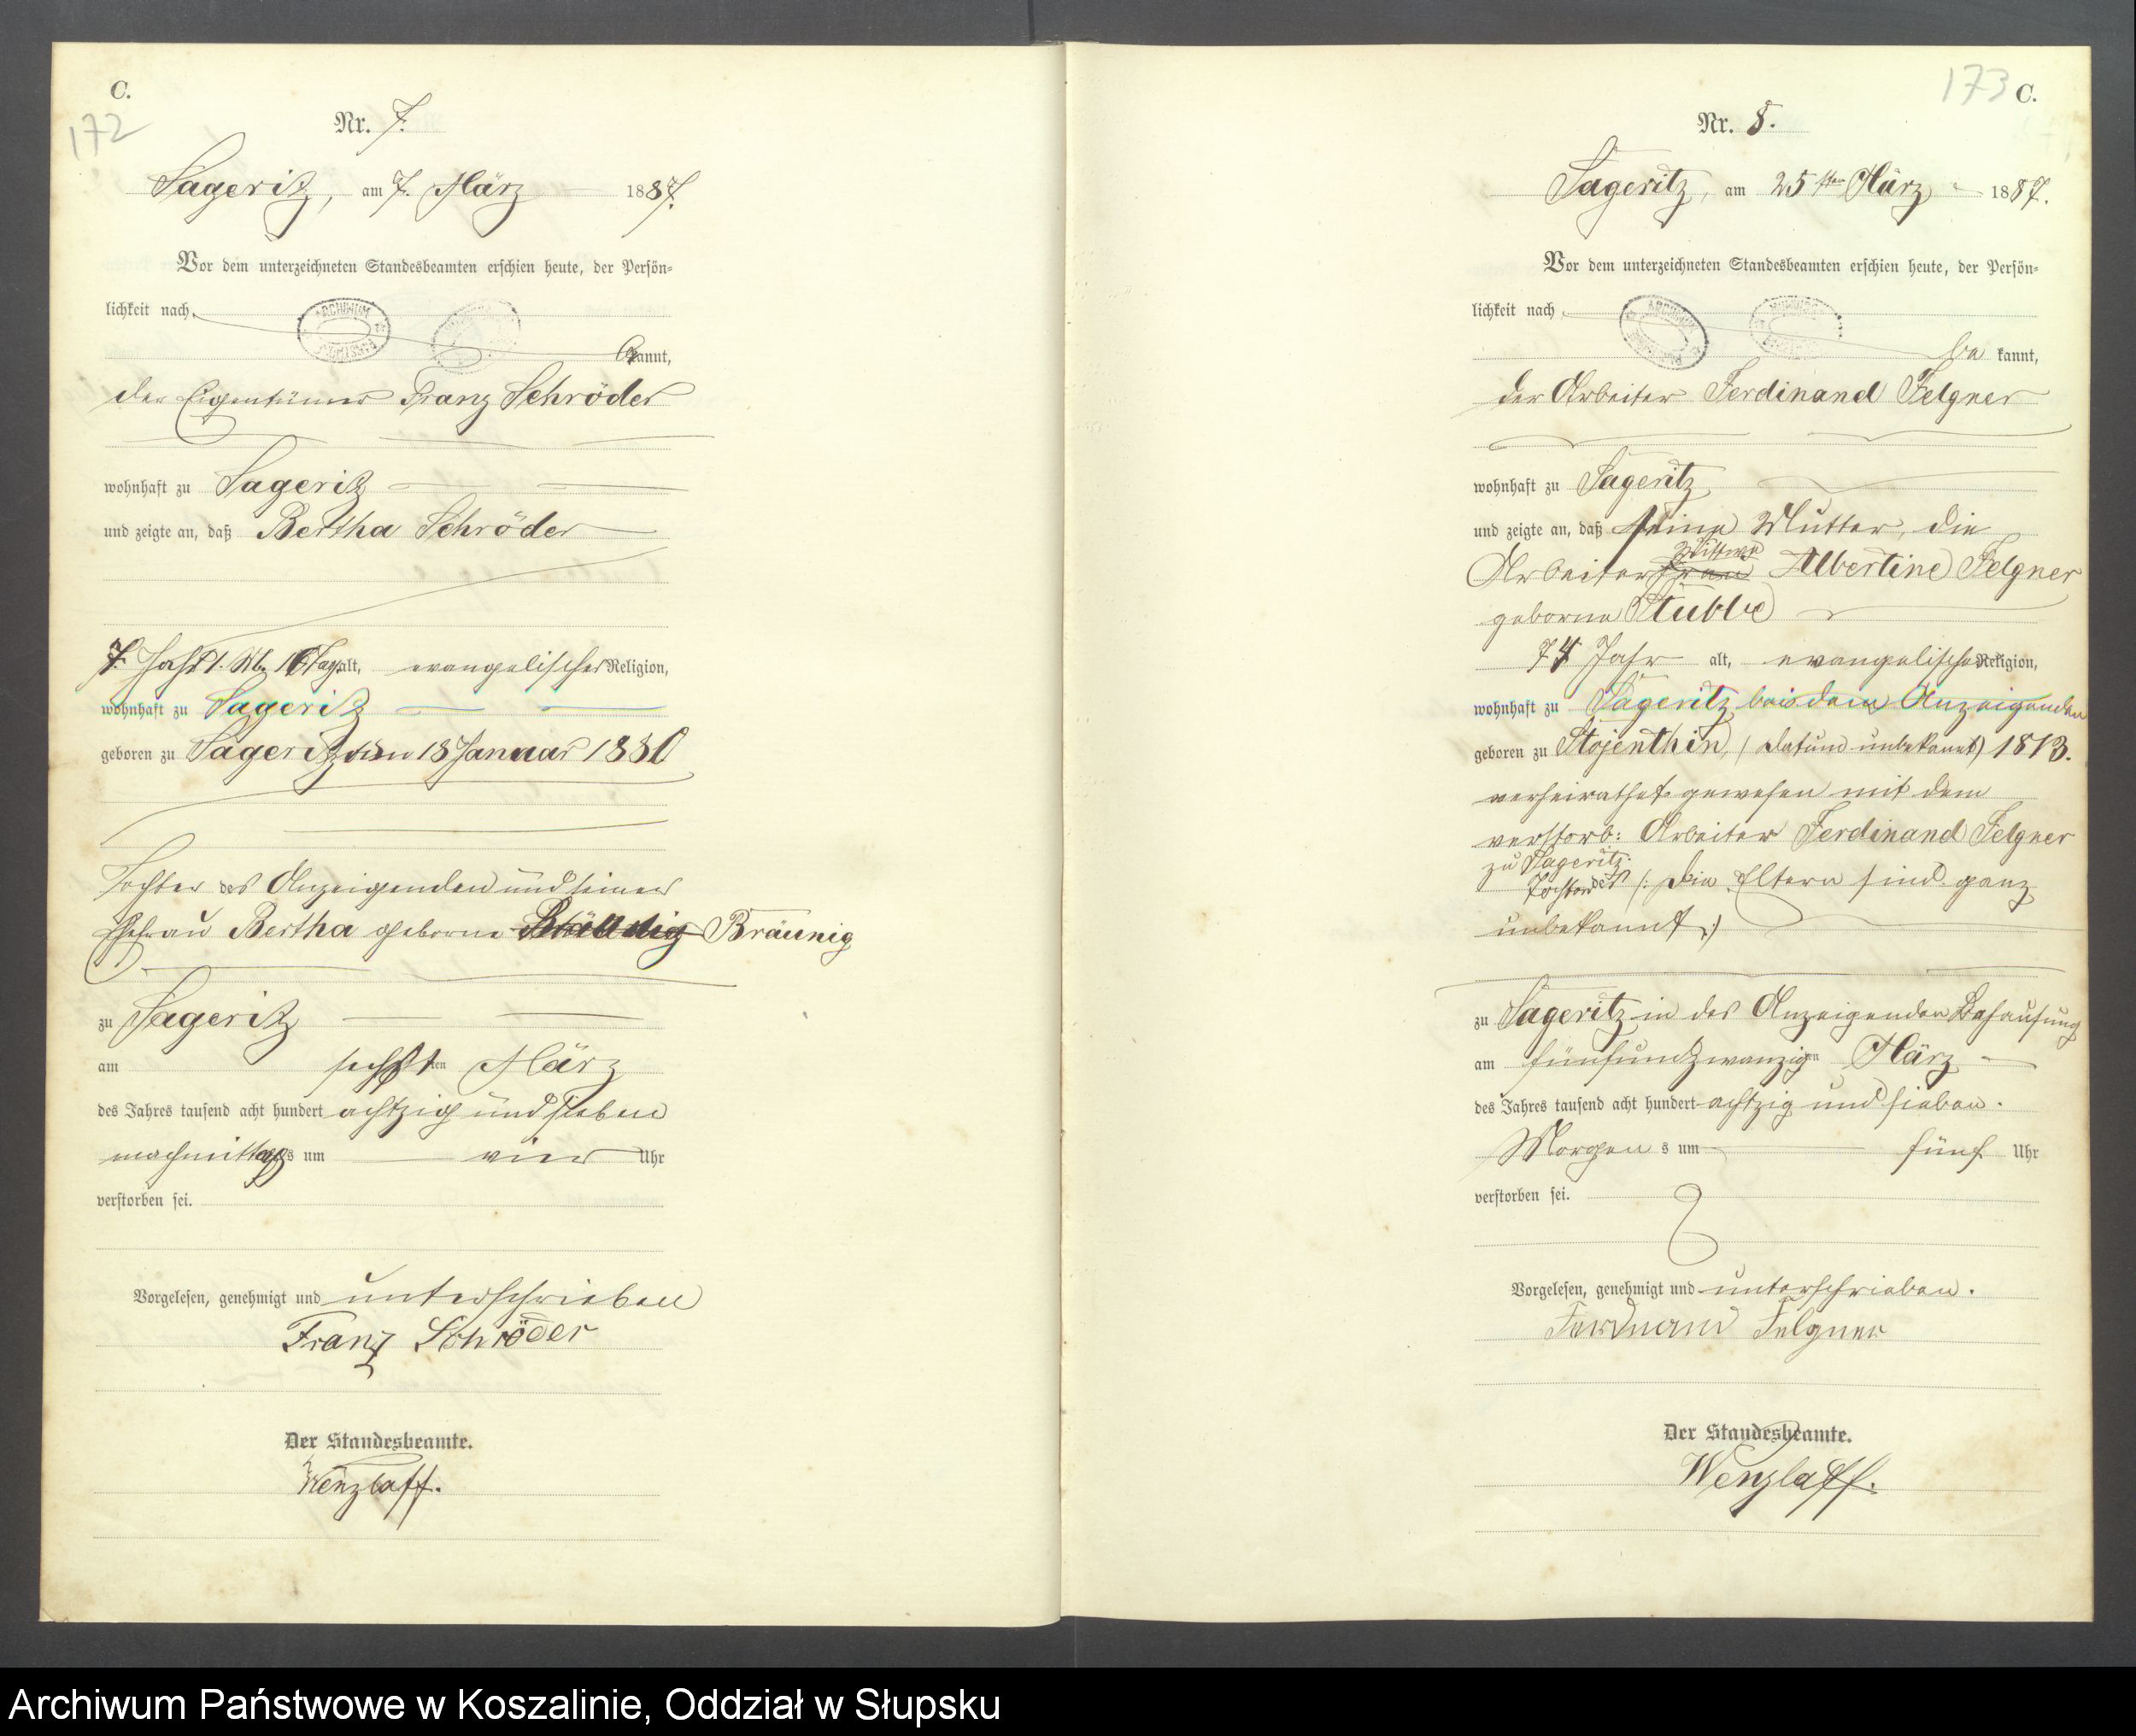 C.
172
Nr. 7.
Sageritz, am 7. März 1887.
Vor dem unterzeichneten Standesbeamten erschien heute, der Persön=
lichkeit nach
kannt,
der Eigentümer Franz Schröder
wohnhaft zu Sageritz
und zeigte an, daß Bertha Schröder
7. Jahr 1. M. 16 Tage alt, evangelischer Religion,
wohnhaft zu Sageritz
geboren zu Sageritz den 18 Januar 1880
Tochter des Anzeigenden und seiner
Ehefrau Bertha geborne Bräunig
zu Sageritz
am sechsten März
des Jahres tausend acht hundert achtzig und sieben
nachmittags um vier Uhr
verstorben sei.
Vorgelesen, genehmigt und unterschrieben
Franz Schröder
Der Standesbeamte.
Wenzlaff.
173 C.
Nr. 8.
Sageritz, am 25sten März 1887.
Vor dem unterzeichneten Standesbeamten erschien heute, der Persön=
lichkeit nach
be kannt,
der Arbeiter Ferdinand Felgner
wohnhaft zu Sageritz
und zeigte an, daß seine Mutter, die
Wittwe
Arbeiterfrau Albertine Felgner
geborne Stubbe
74 Jahr alt, evangelischer Religion,
wohnhaft zu Sageritz bei dem Anzeigenden
geboren zu Stojenthin, (Datum unbekannt) 1813.
verheirathet gewesen mit dem
verstorb: Arbeiter Ferdinand Felgner
zu Sageritz.
Tochter der /: Die Eltern sind ganz
unbekannt :/
zu Sageritz in des Anzeigenden Behausung
am fünfundzwanzigen März
des Jahres tausend acht hundert achtzig und sieben.
Morgens um fünf Uhr
verstorben sei.
Vorgelesen, genehmigt und unterschrieben.
Ferdinand Felgner
Der Standesbeamte.
Wenzlaff.
Archiwum Państwowe w Koszalinie, Oddział w Słupsku